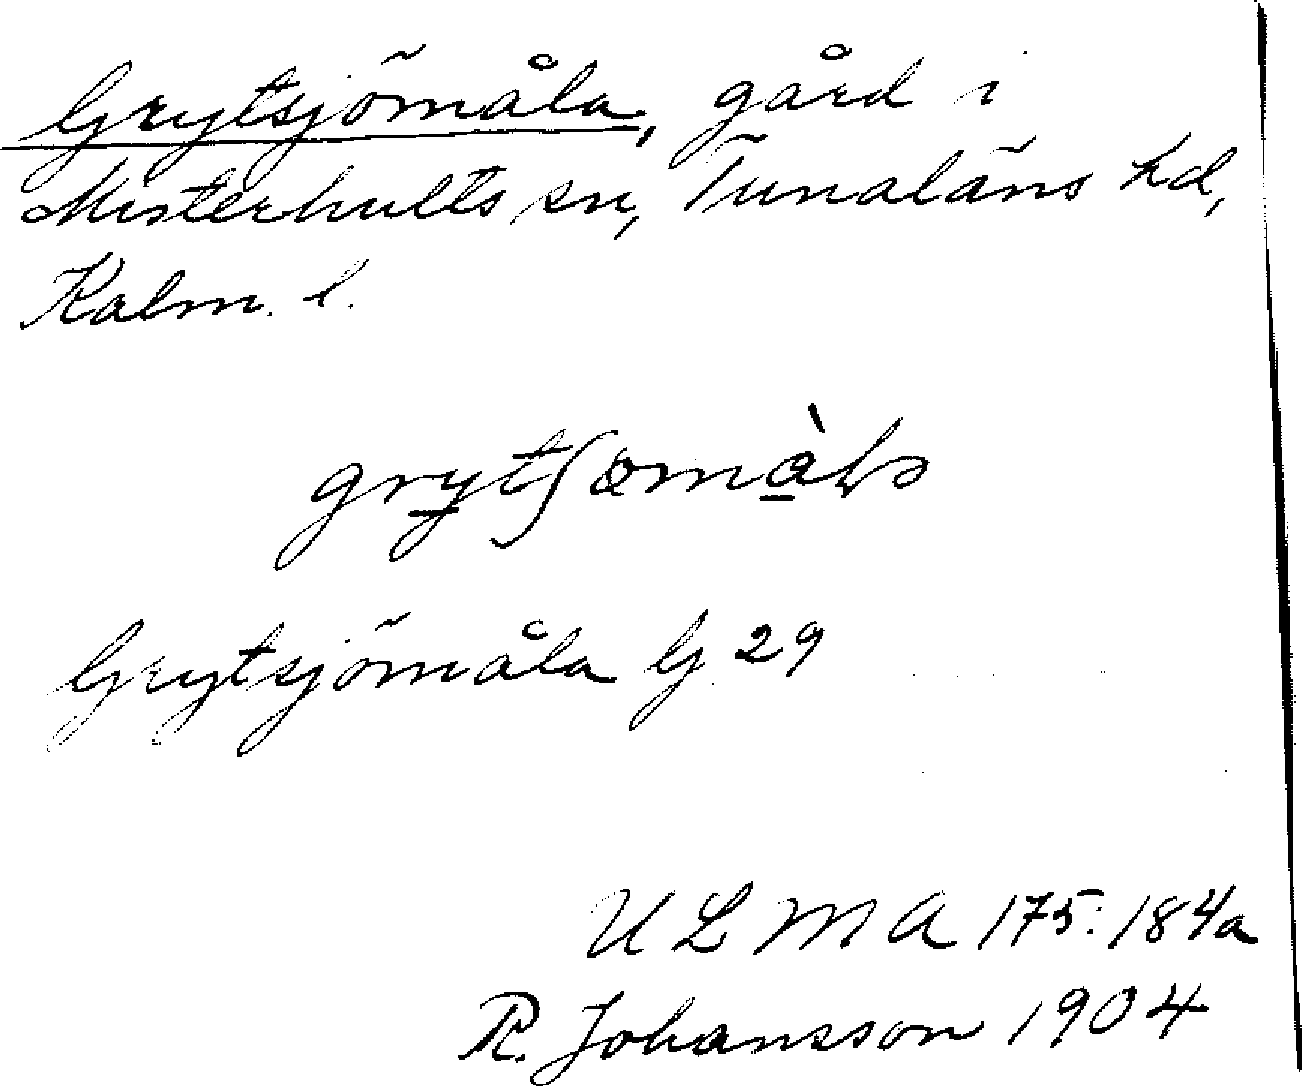 Grytsjömåla, gård i
Misterhults sn, Tunaläns hd,
Kalm. l.
Grytsjömåla G 29
ULMA 175:184a
R. Johansson 1904